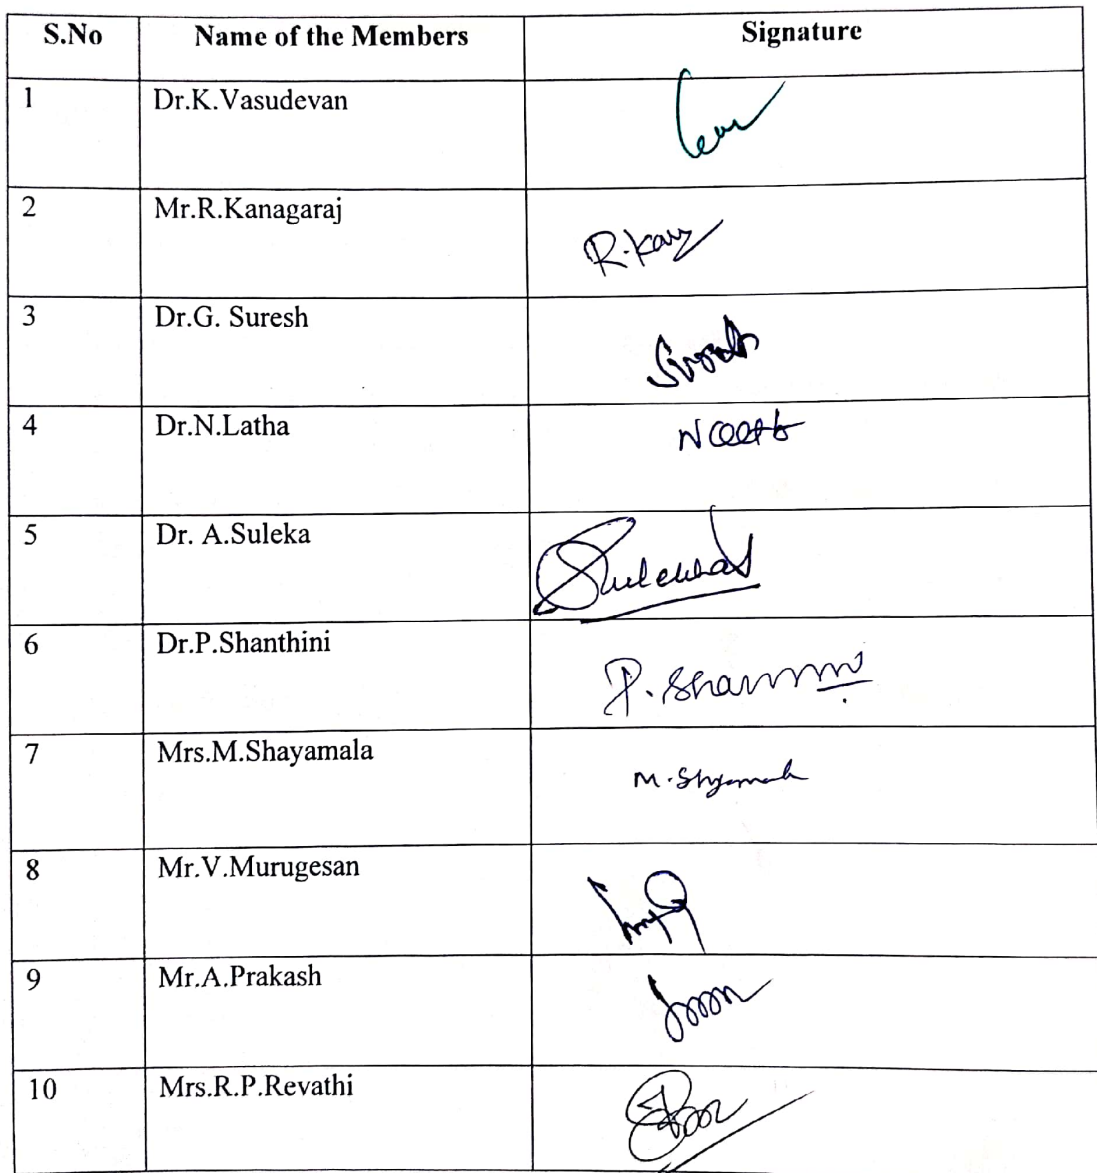 S.No Name of the Members Signature
1 Dr.K.Vasudevan
2 Mr.R.Kanagaraj R.Kan
3 Dr.G. Suresh
4 Dr.N.Latha
5 Dr. A.Suleka
6 Dr.P.Shanthini
7 Mrs.M.Shayamala M.Shyamala
8 Mr.V.Murugesan
9 Mr.A.Prakash
10 Mrs.R.P.Revathi